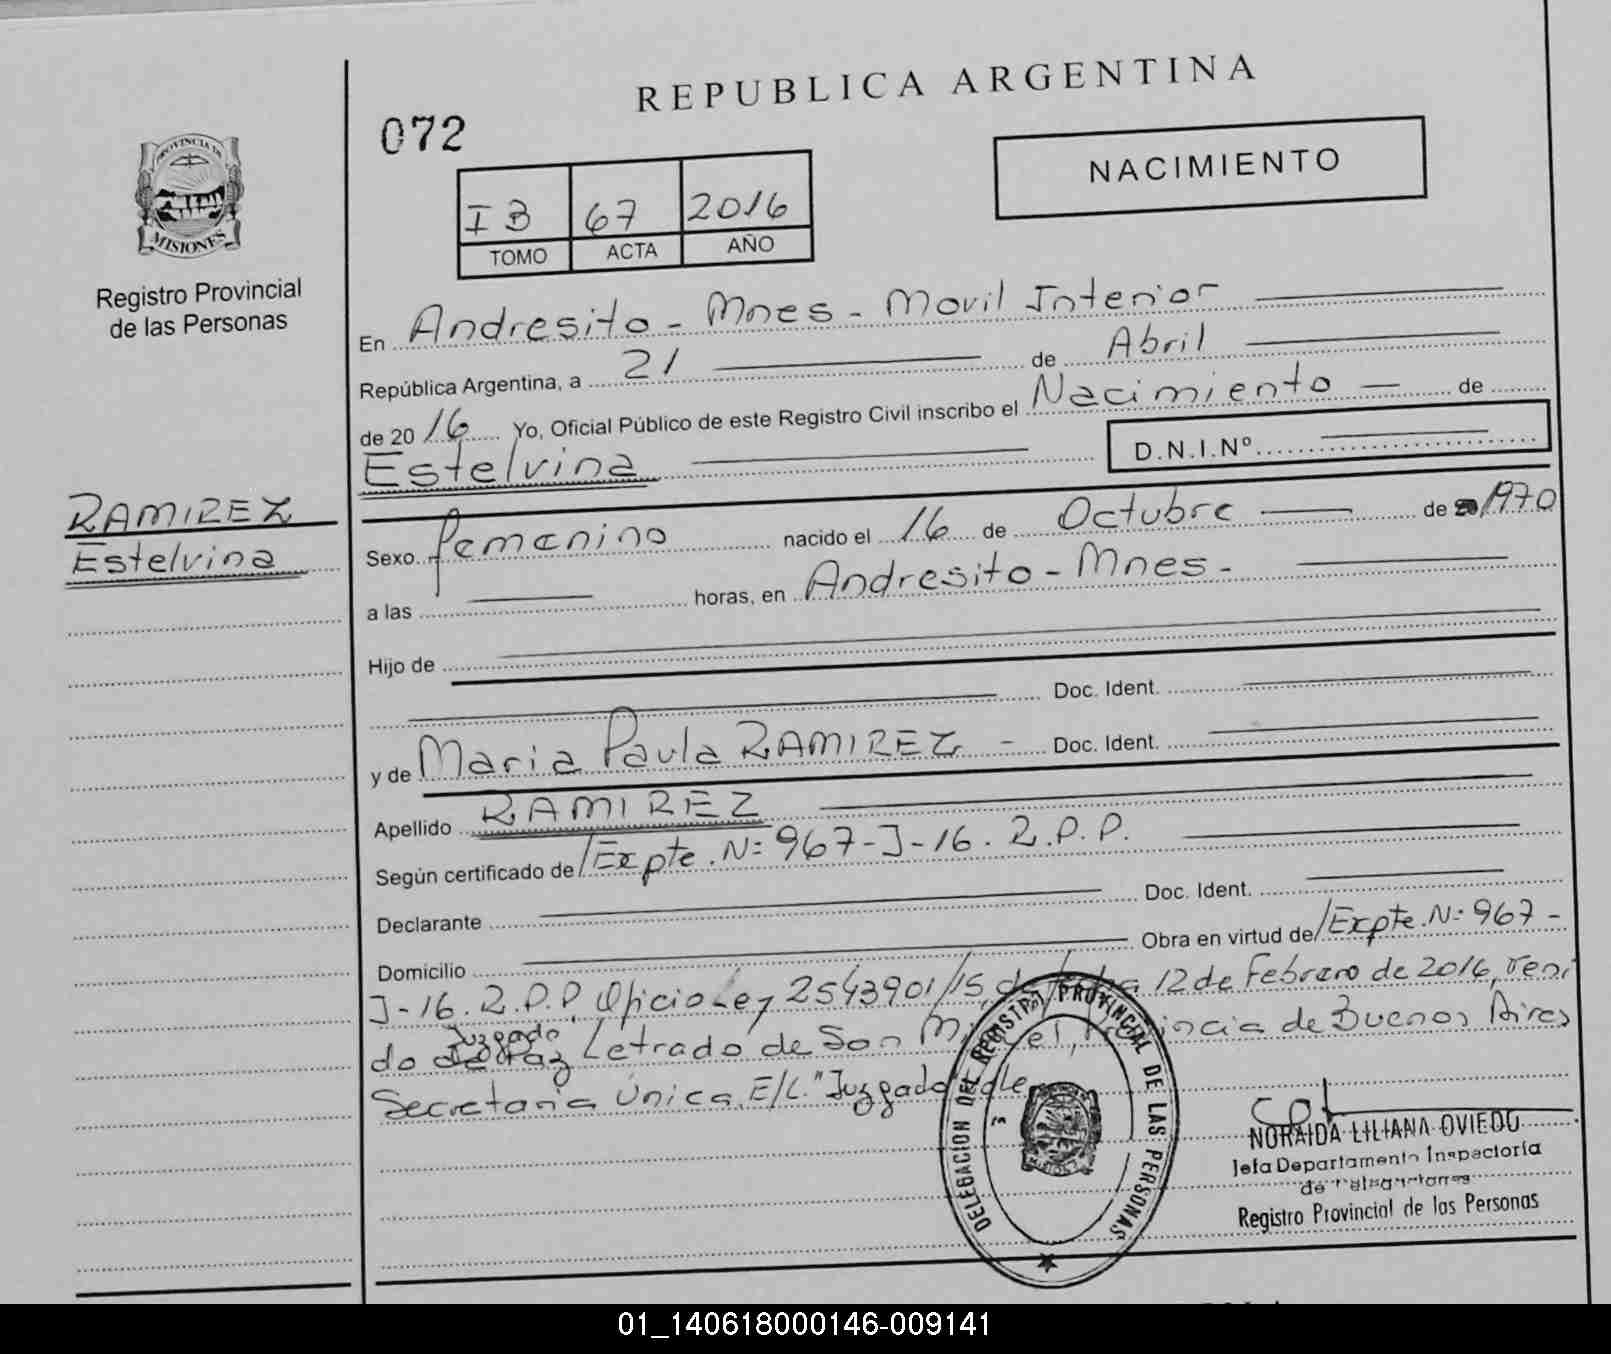 REPUBLICA ARGENTINA
072
NACIMIENTO
PROVINCIA DE
MISIONES
Registro Provincial
de las Personas
I B 67 2016
TOMO ACTA AÑO
En Andresito - Mnes - Movil Interior
República Argentina, a 21 de Abril
de 2016 Yo, Oficial Público de este Registro Civil inscribo el Nacimiento de
Estelvina D.N.I.Nº
RAMIREZ
Estelvina
Sexo femenino nacido el 16 de Octubre de 1970
a las horas, en Andresito - Mnes -
Hijo de
Doc. Ident.
y de Maria Paula RAMIREZ - Doc. Ident.
Apellido RAMIREZ
Según certificado de/Expte. Nº 967-J-16. R.P.P.
Declarante Doc. Ident.
Domicilio Obra en virtud de/Expte. Nº 967-
J-16. R.P.P, Oficio Ley 2543901/15, 12 de Febrero de 2016, veni
do de Paz Letrado de San Miguel, Provincia de Buenos Aires
Juzgado
Secretaria Única. E/L. "Juzgado" dle
DELEGACION DEL REGISTRO PROVINCIAL DE LAS PERSONAS
MISIONES
NORAIDA LILIANA OVIEDO
Jefa Departamento Inspectoría
de
Registro Provincial de las Personas
01_140618000146-009141